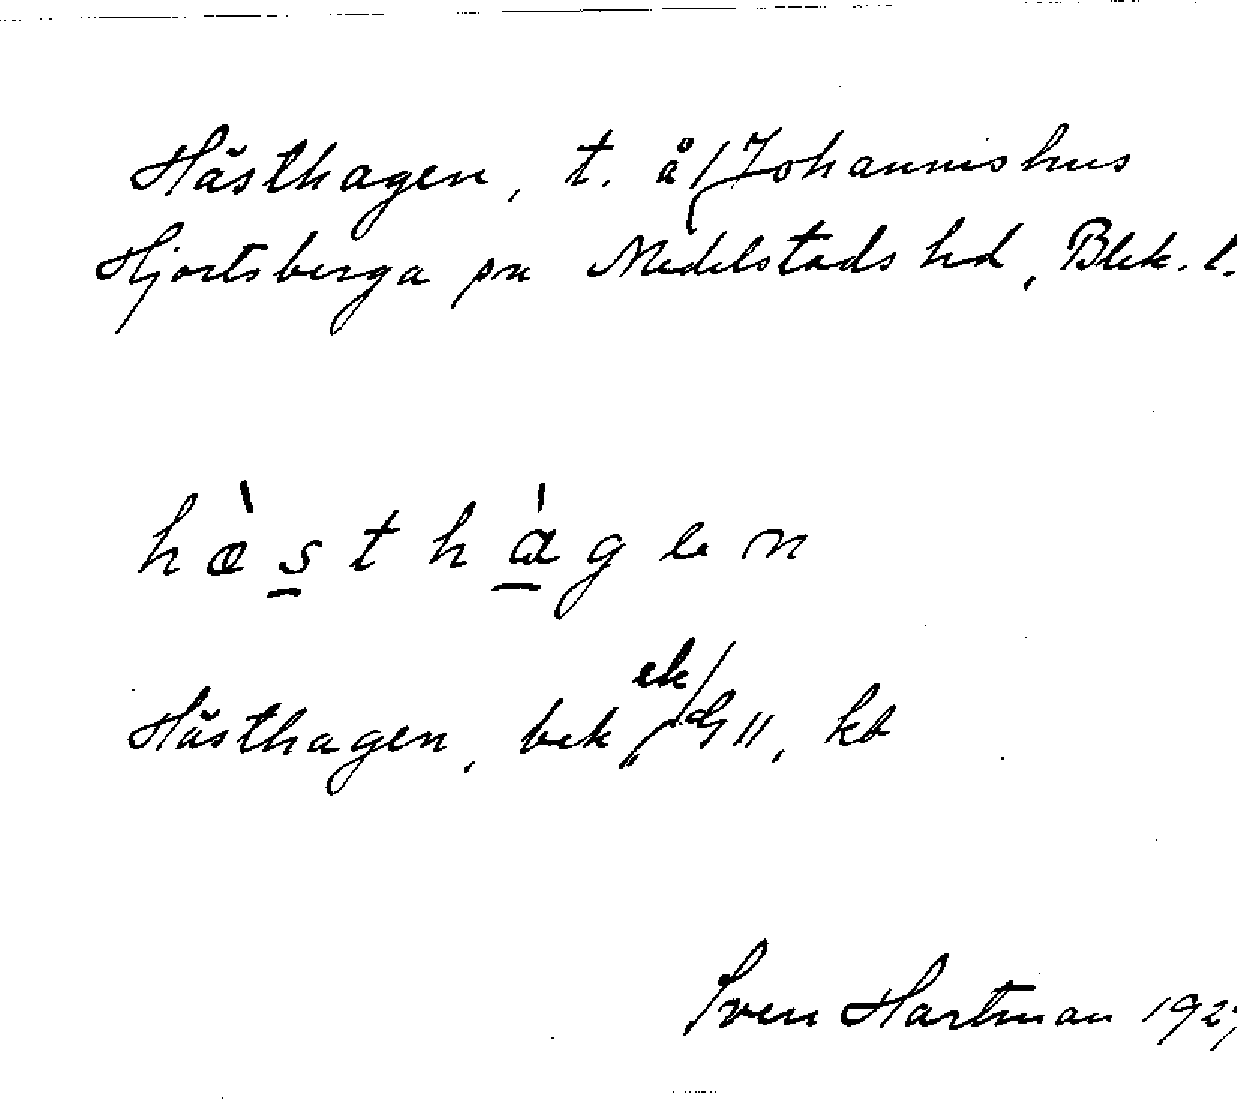 Hästhagen, t. å Johannishus
Hjortsberga sn Medelstads hd, Blek. l.
hæ̀sthágen
Hästhagen, bek GII, kb
ek
Sven Hartman 1927